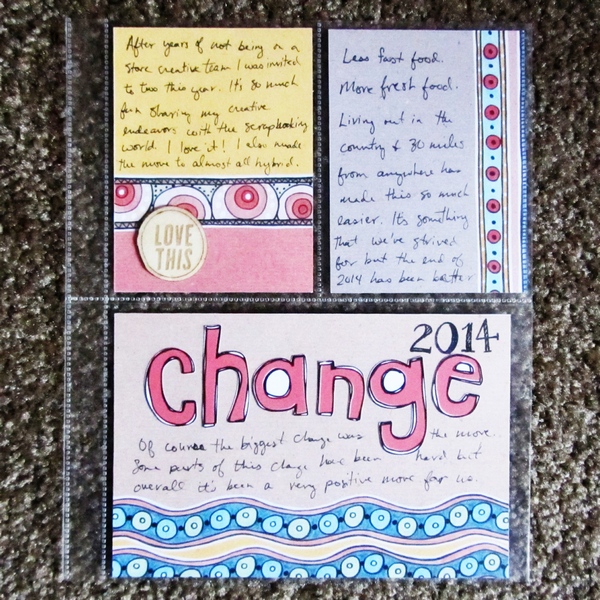 After years of not being on a
store creative team I was invited
to two this year. It's so much
fun sharing my creative
endeavors with the scrapbooking
world. I love it! I also made
the move to almost all hybrid.
LOVE
THIS
Less fast food.
More fresh food.
Living out in the
country & 30 miles
from anywhere has
made this so much
easier. It's something
that we've strived
for but the end of
2014 has been better
2014
change
Of course the biggest change was the move.
Some parts of this change have been hard but
overall it's been a very positive move for us.